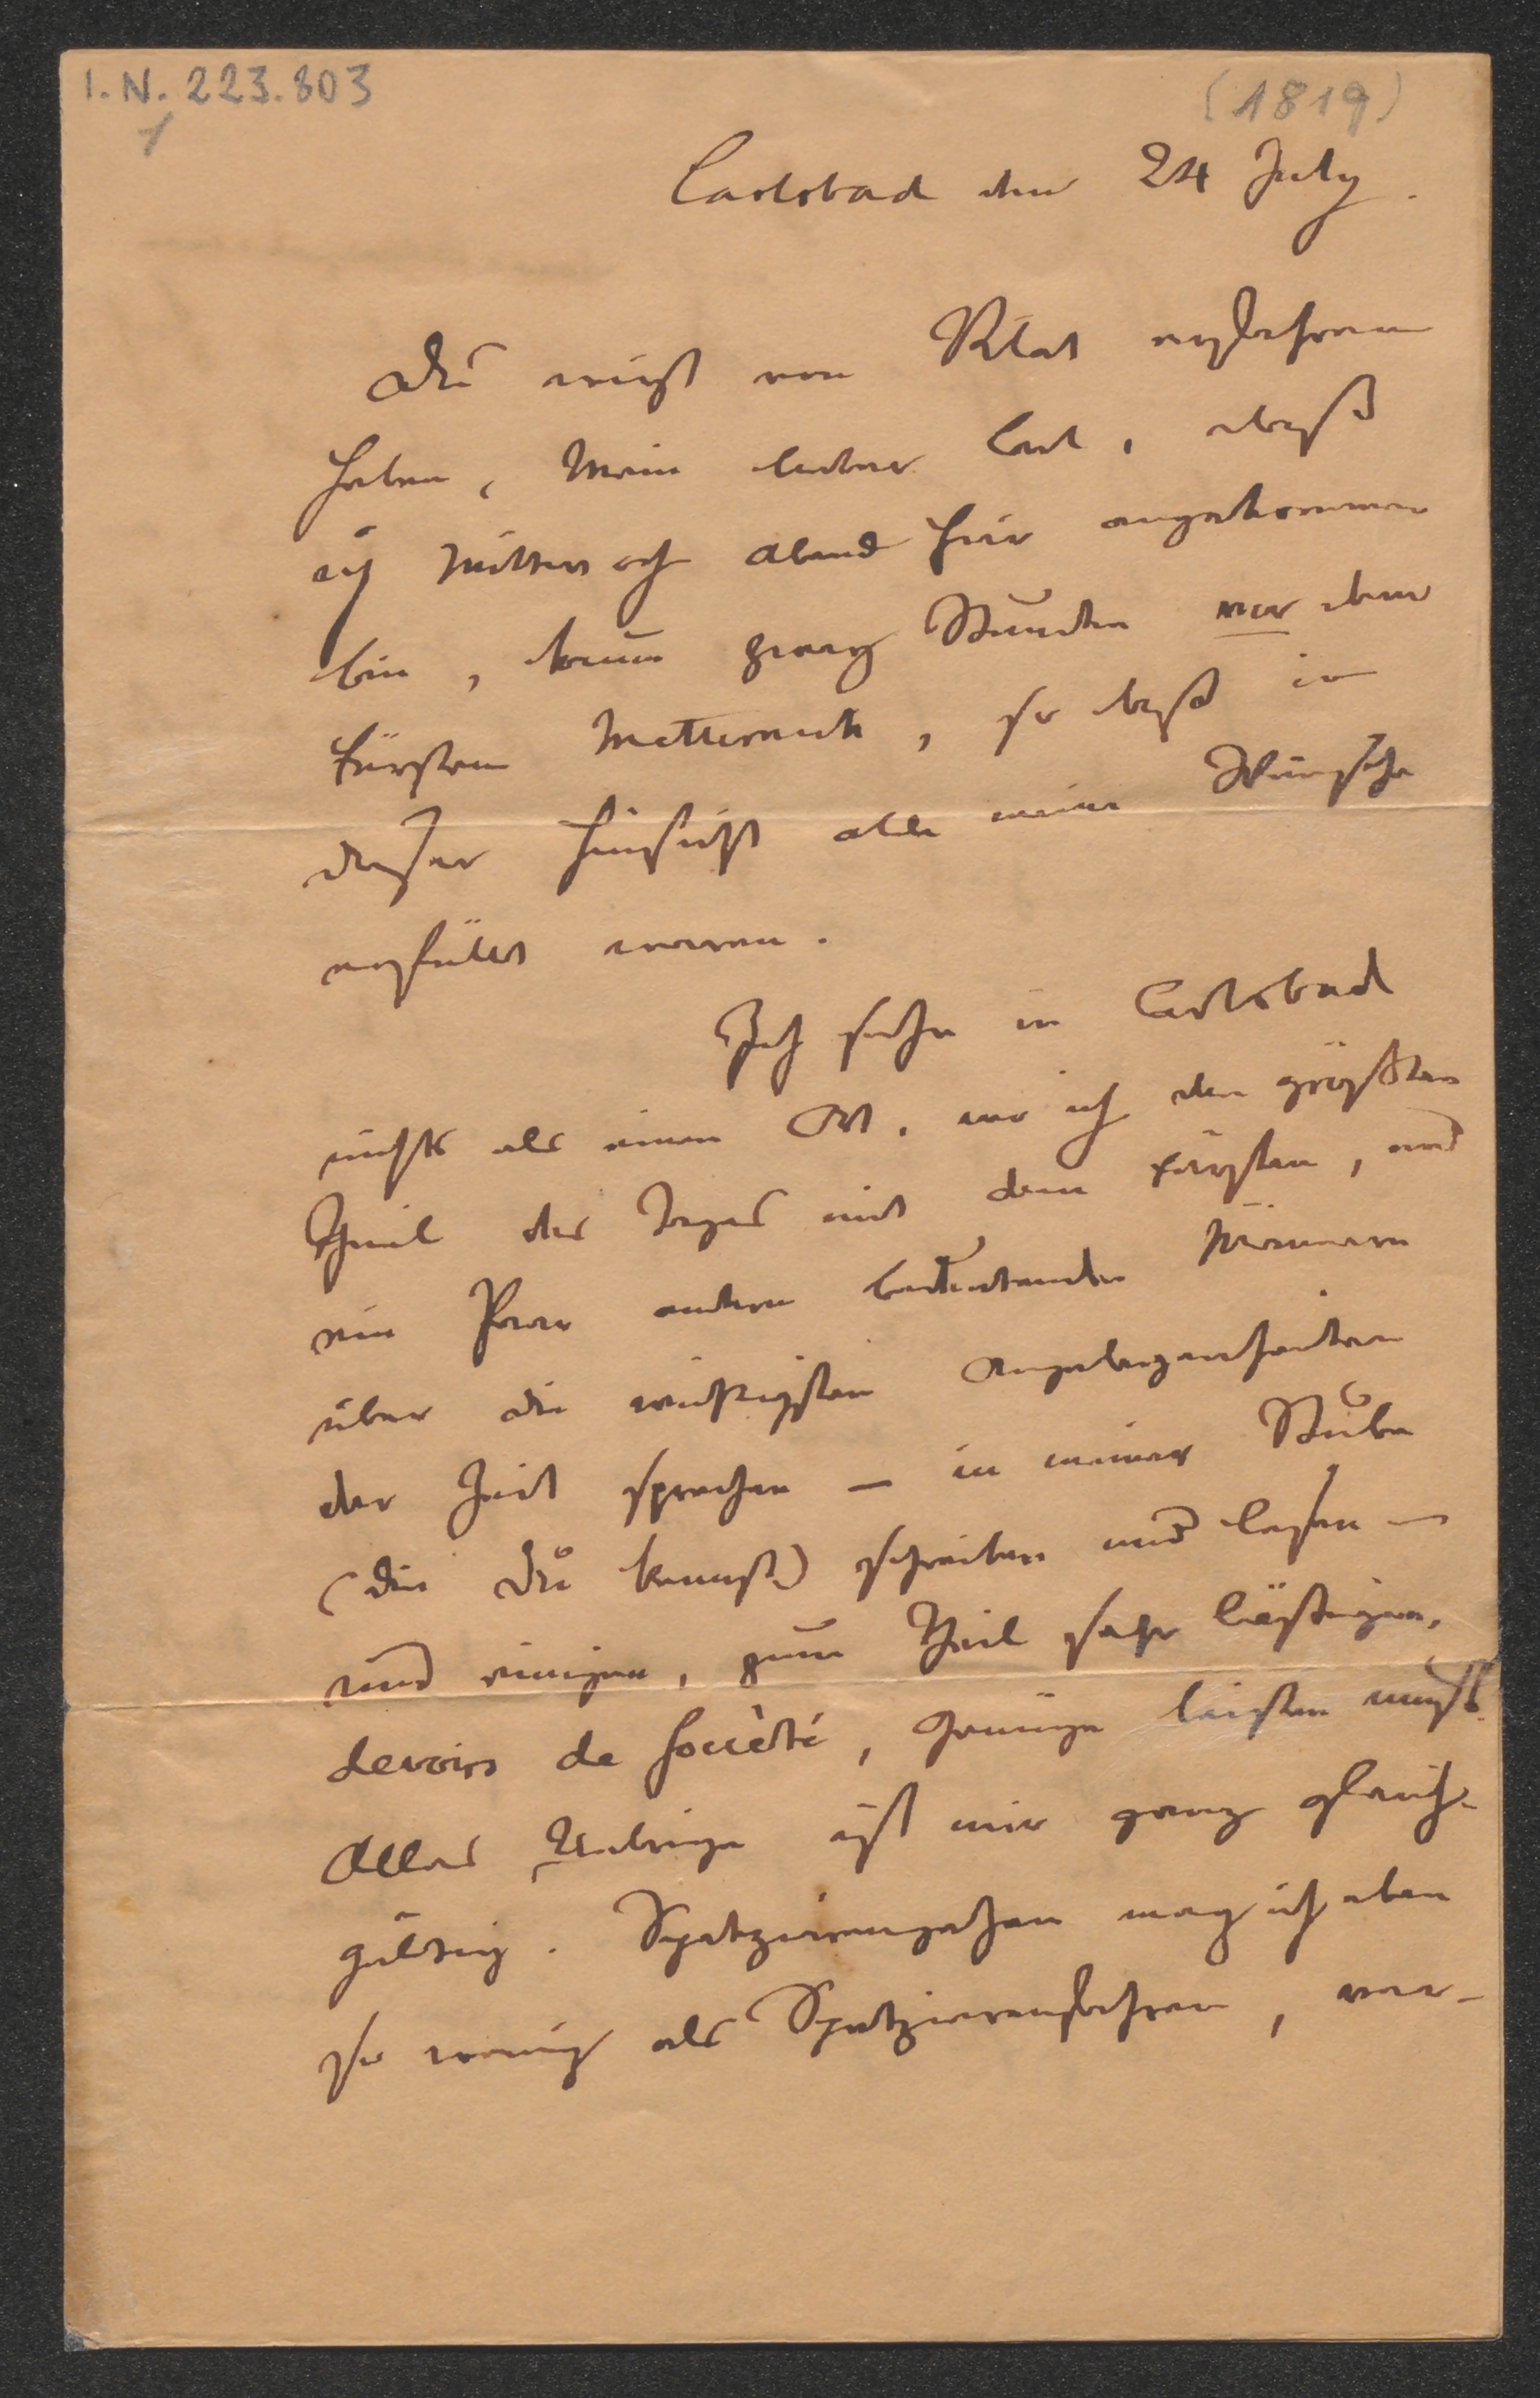 I. N. 223.803
1
(1819)
Carlsbad den 24 July.
Du wirst von Pilat erfahren
haben, Mein lieber Carl, daß
ich Mittwoch Abend hier angekommen
bin, kaum zwey Stunden vor dem
Fürsten Metternich, so daß in
dieser Hinsicht alle meine Wünsche
erfüllt waren.
Ich sehe in Carlsbad
nichts als einen Ort, wo ich den größten
Theil des Tages mit dem Fürsten, und
ein Paar andern bedeutenden Männern
über die wichtigsten Angelegenheiten
der Zeit sprechen – in meiner Stube
(die Du kennst) schreiben und lesen –
und einigen, zum Theil sehr lästigen,
devoirs de société, Genüge leisten muß.
Alles Uebrige ist mir ganz gleich-
gültig. Spatzierengehen mag ich eben
so wenig als Spatzierenfahren, ver-